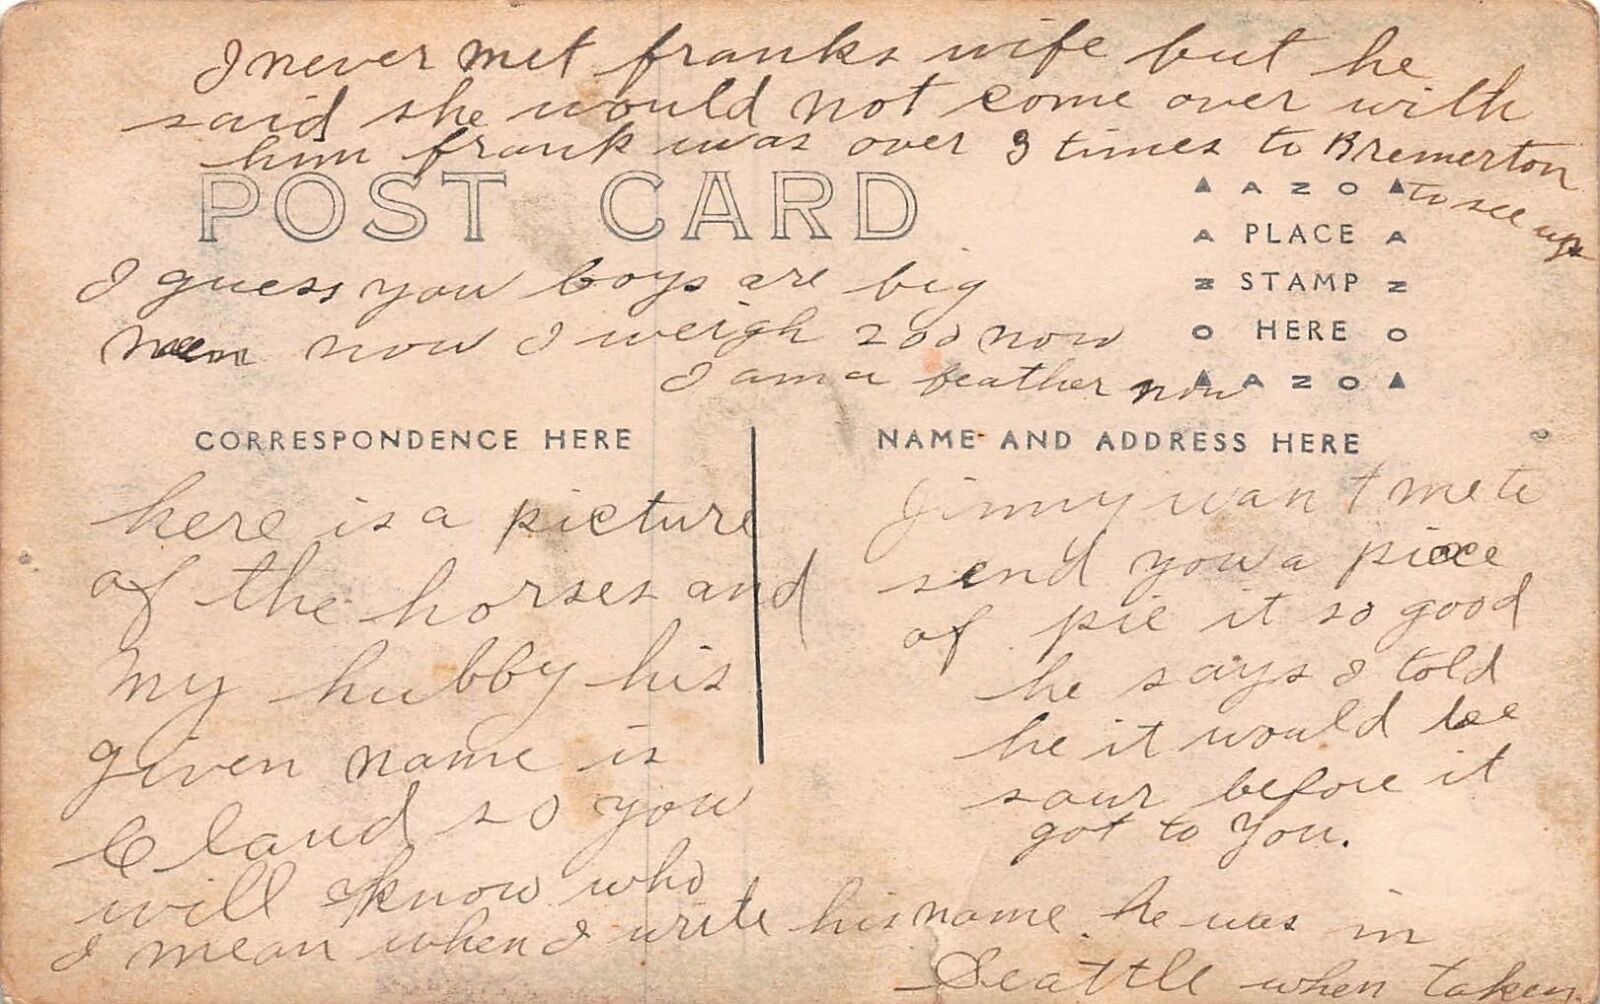 I never met franks wife but he
said she would not come over with
him frank was over 3 times to Bremerton
to see us
POST CARD
AZO
PLACE
STAMP
HERE
AZO
I guess you boys are big
men now I weigh 200 now
I am a feather now
CORRESPONDENCE HERE
here is a picture
of the horses and
my hubby his
given name is
Claud so you
will know who
I mean when I write his name. he was in
Seattle when taken
NAME AND ADDRESS HERE
Jimmy want me to
send you a piece
of pie it so good
he says I told
he it would be
sour before it
got to you.